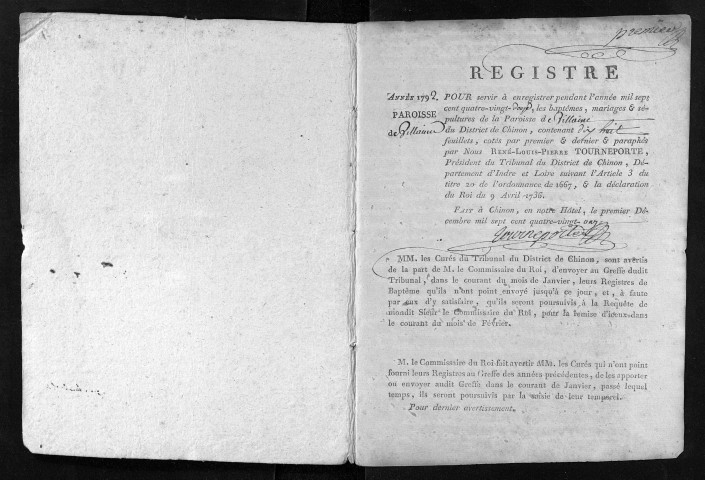 premier
REGISTRE
ANNÉE 1792.
PAROISSE
de Villaine
POUR servir à enregistrer pendant l'année mil sept
cent quatre-vingt-douze, les baptêmes, mariages & sé-
pultures de la Paroisse de Villaine
du District de Chinon, contenant dix huit
feuillets, cotés par premier & dernier & paraphés
par Nous RENÉ-LOUIS-PIERRE TOURNEPORTE,
Président du Tribunal du District de Chinon, Dé-
partement d'Indre et Loire suivant l'Article 3 du
titre 20 de l'ordonnance de 1667, & la déclaration
du Roi du 9 Avril 1736.
FAIT à Chinon, en notre Hôtel, le premier Dé-
cembre mil sept cent quatre-vingt-onze
Tourneporte
MM. les Curés du Tribunal du District de Chinon, sont avertis
de la part de M. le Commissaire du Roi, d'envoyer au Greffe dudit
Tribunal, dans le courant du mois de Janvier, leurs Registres de
Baptême qu'ils n'ont point envoyé jusqu'à ce jour, et, à faute
par eux d'y satisfaire, qu'ils seront poursuivis à la Requête de
mondit Sieur le Commissaire du Roi, pour la remise d'iceux dans
le courant du mois de Février.
M. le Commissaire du Roi fait avertir MM. les Curés qui n'ont point
fourni leurs Registres au Greffe des années précédentes, de les apporter
ou envoyer audit Greffe dans le courant de Janvier, passé lequel
temps, ils seront poursuivis par la saisie de leur temporel.
Pour dernier avertissement.